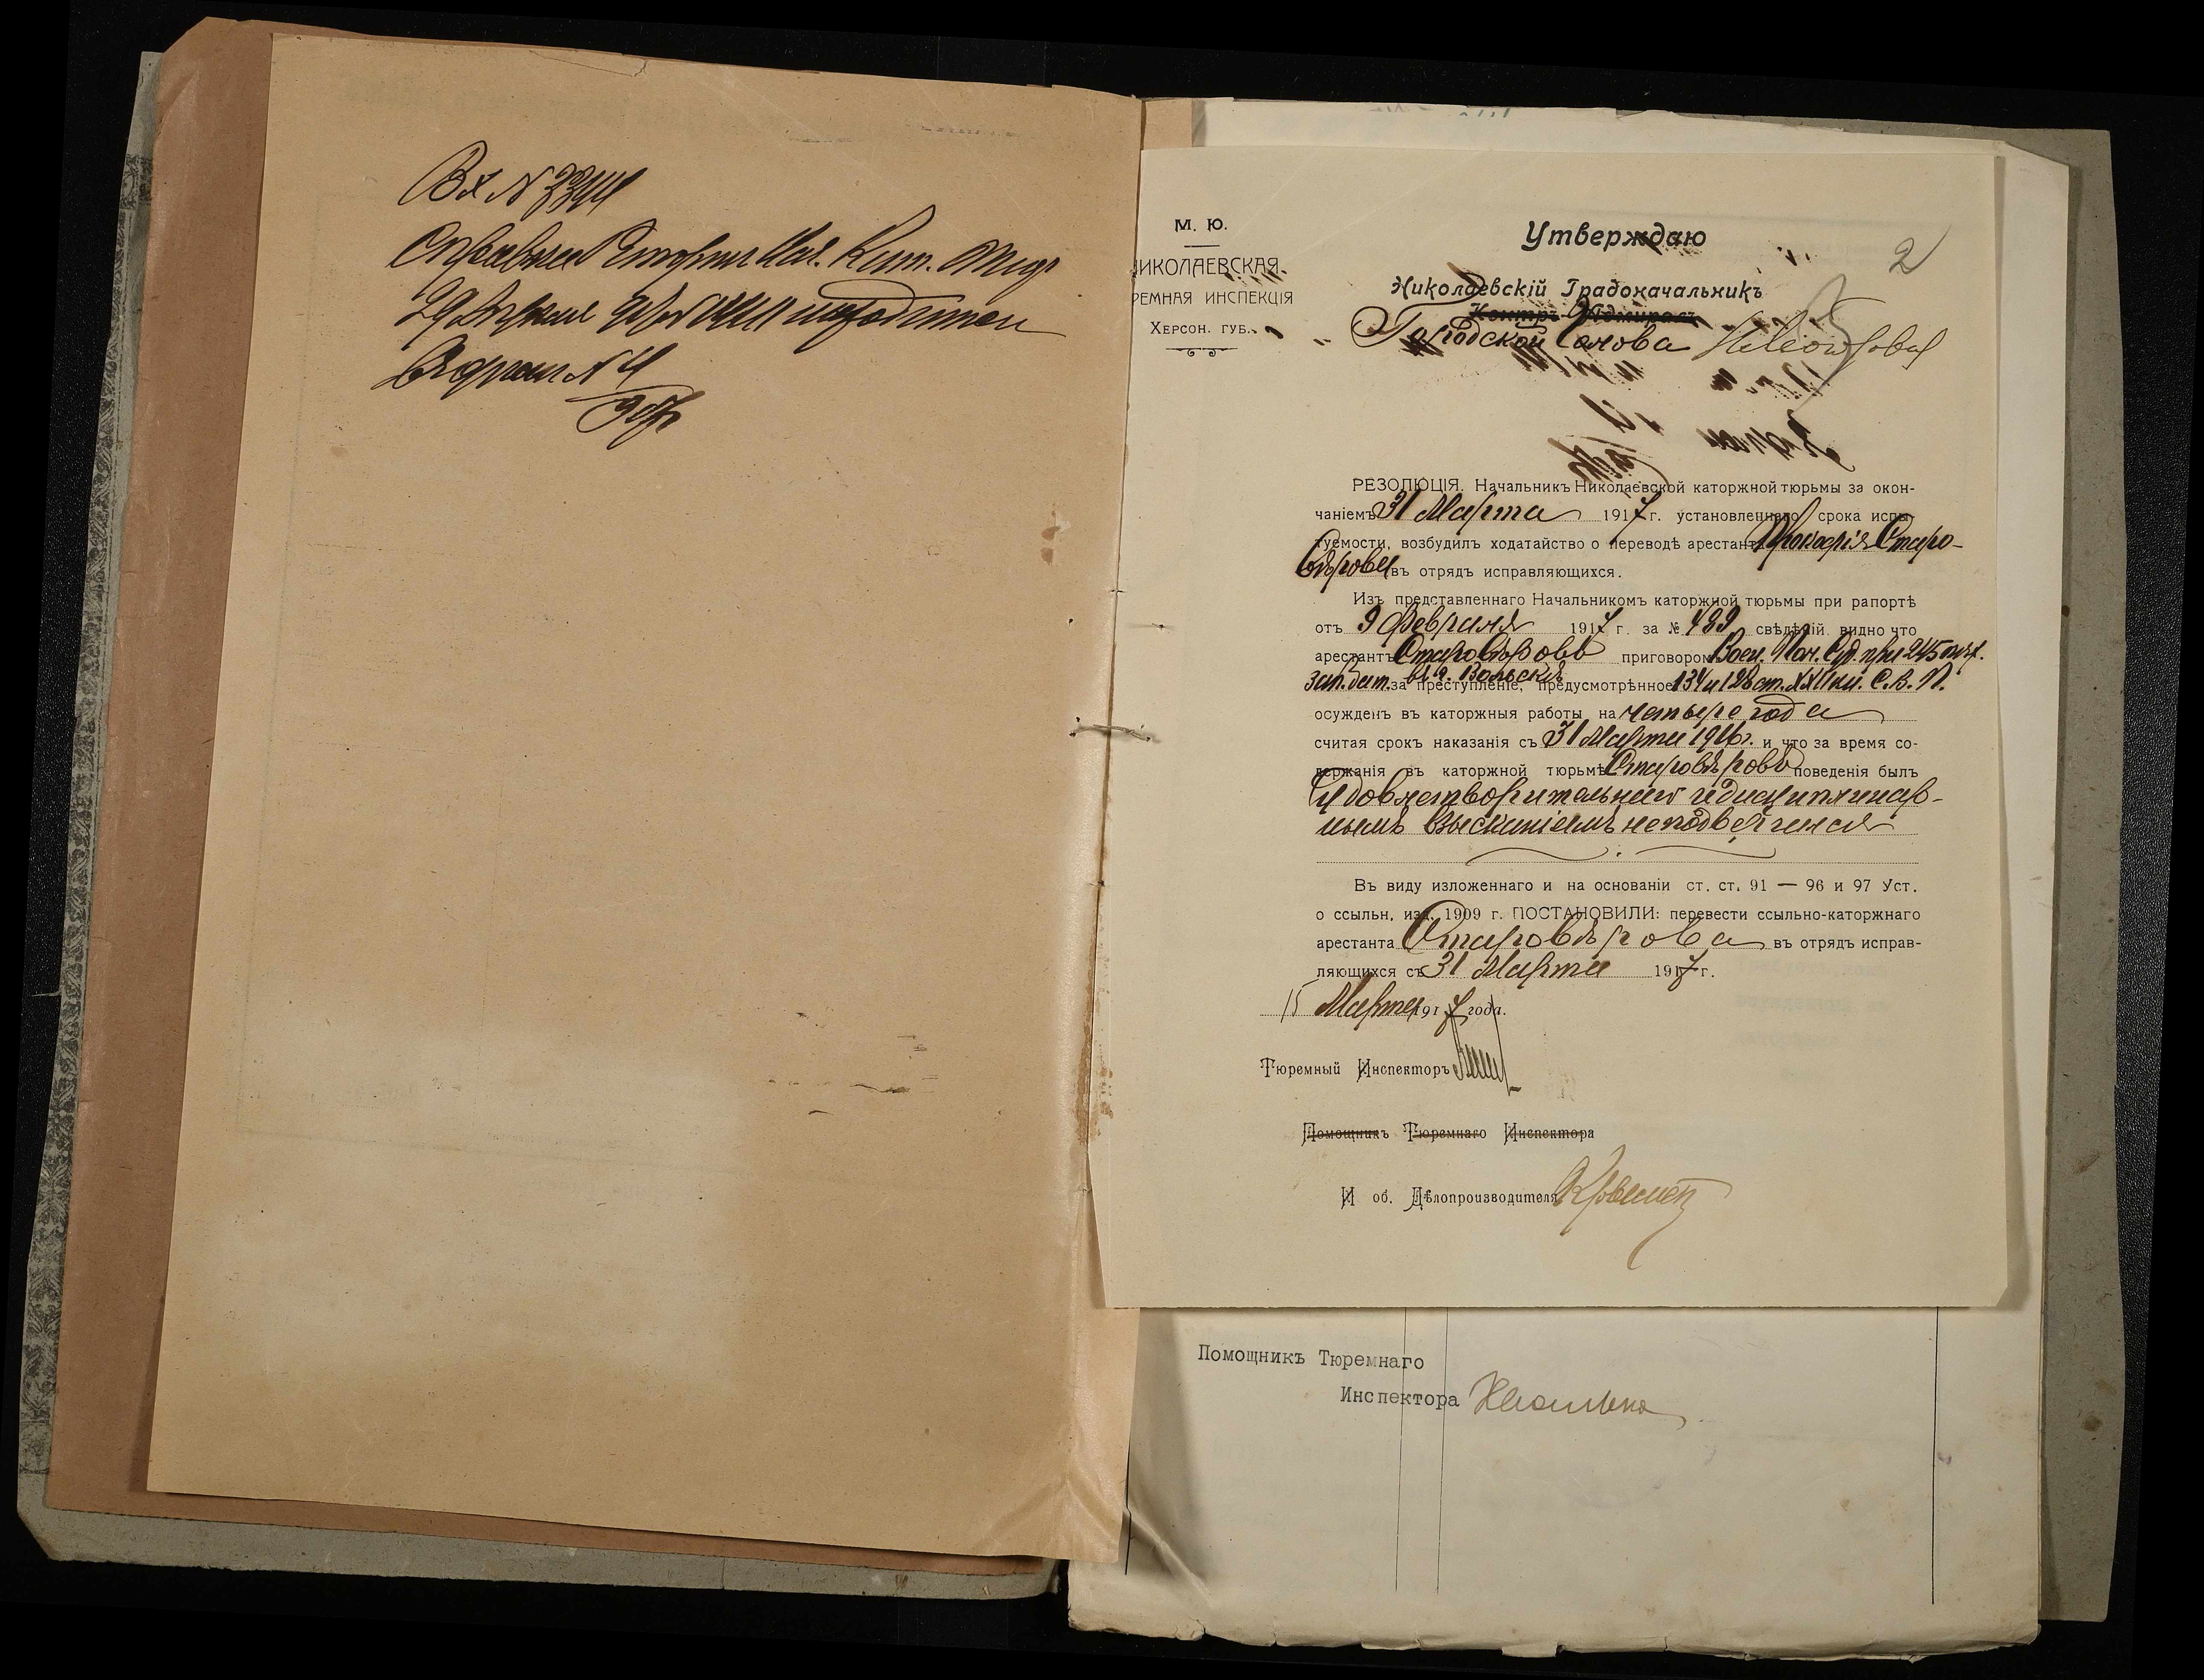 Вх N 2344
Справка
29
N 4
2
М. Ю.
НИКОЛАЕВСКАЯ
РЕМНАЯ ИНСПЕКЦІЯ
ХЕРСОН. ГУБ.
Утверждаю
Николаевскій Градоначальникъ
Контръ-Адмиралъ
Городской Голова
РЕЗОЛЮЦІЯ. Начальникъ Николаевской каторжной тюрьмы за окон-
чаніемъ 31 Марта 1917 г. установленнаго срока испы-
туемости, возбудилъ ходатайство о переводѣ арестанта Прокофія Старо-
вѣрова въ отрядъ исправляющихся.
Изъ представленнаго Начальникомъ каторжной тюрьмы при рапортѣ
отъ 9 Февраля 1917 г. за № 489 свѣдѣній видно что
арестантъ Старовѣровъ приговоромъ Воен. Пол. Суд. при 245 пѣх.
зап. бат. въ г. Вольскѣ за преступленіе, предусмотрѣнное 134 и 128 ст. XXII кн. С. В. П.
осужденъ въ каторжныя работы на четыре года
считая срокъ наказанія съ 31 Марта 1916 г. и что за время со-
держанія въ каторжной тюрьмѣ Старовѣровъ поведенія былъ
удовлетворительнаго и дисциплинар-
нымъ взысканіямъ не подвергался
Въ виду изложеннаго и на основаніи ст. ст. 91 — 96 и 97 Уст.
о ссыльн, изд. 1909 г. ПОСТАНОВИЛИ: перевести ссыльно-каторжнаго
арестанта Старовѣрова въ отрядъ исправ-
ляющихся съ 31 Марта 1917 г.
15 Марта 1917 года.
Тюремный Инспекторъ
Помощникъ Тюремнаго Инспектора
И об. Дѣлопроизводителя
Помощникъ Тюремнаго
Инспектора